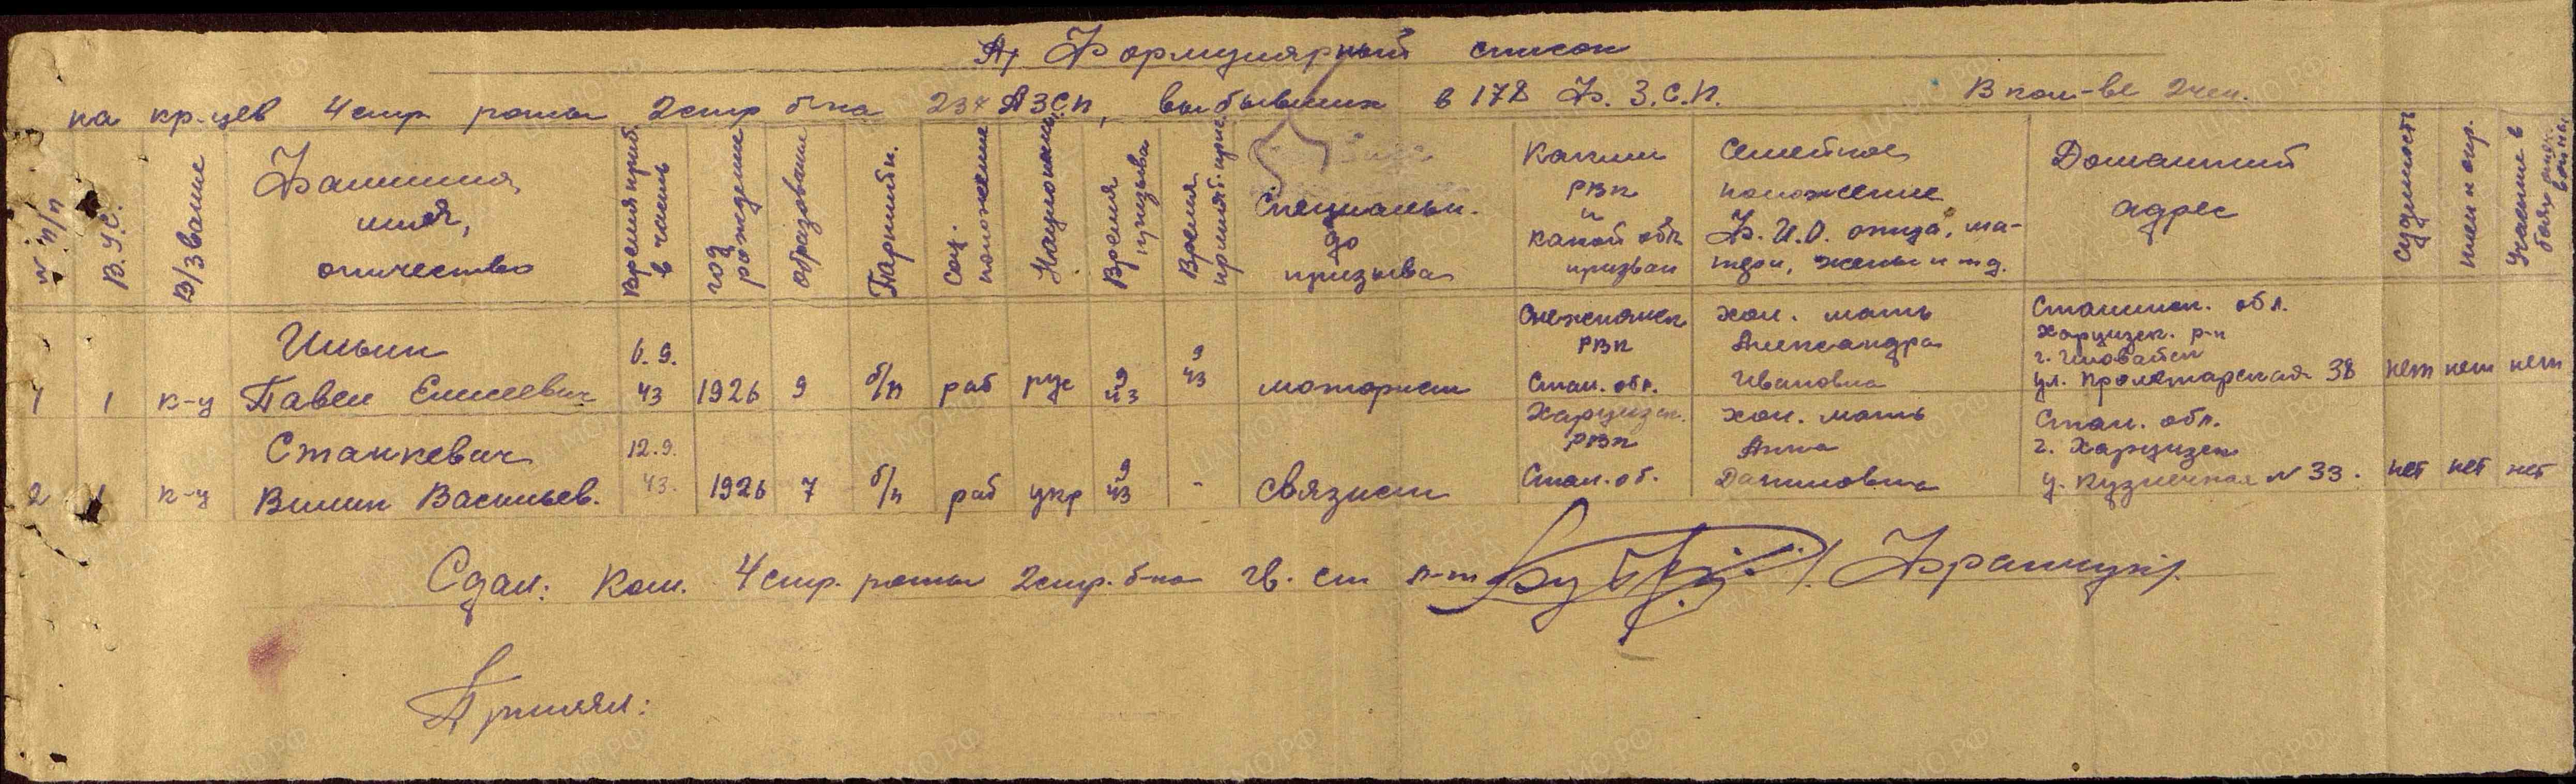 Формулярный список
на кр-цев 4 стр роты 2 стр б-на 234 АЗСП, выбывших в 178 Ф.З.С.П. В кол-ве 2 чел.
№ п/п
В.У.С.
В/звание
Фамилия, имя, отчество
Время приб. в часть
год рождения
образование
Партийн.
Соц. положение
Националь.
Время призыва
Время принят. прис.
Специальн. до призыва
Каким РВК и какой обл. призван
Семейное положение Ф.И.О. отца, матери, жены и т д.
Домашний адрес
Судимость
Участие в боях отеч. войны
1 1 к-ц Ильин Павел Елисеевич 6.9.43 1926 9 б/п раб рус 9 43 9 43 моторист Снежнянск РВК Стал. обл. хол. мать Александра Ивановна Сталинск. обл. Харцизск. р-н г. Иловайск ул. Пролетарская 38 нет нет нет
2 1 к-ц Станкевич Вилин Васильев. 12.9.43. 1926 7 б/п раб укр 9 43 - связист Харцизск. РВК Стал. об. хол. мать Анна Даниловна Стал. обл. г. Харцизск у. Кузнечная N 33. нет нет нет
Сдал: Ком. 4 стр. роты 2 стр. б-на гв. ст л-т
Принял: